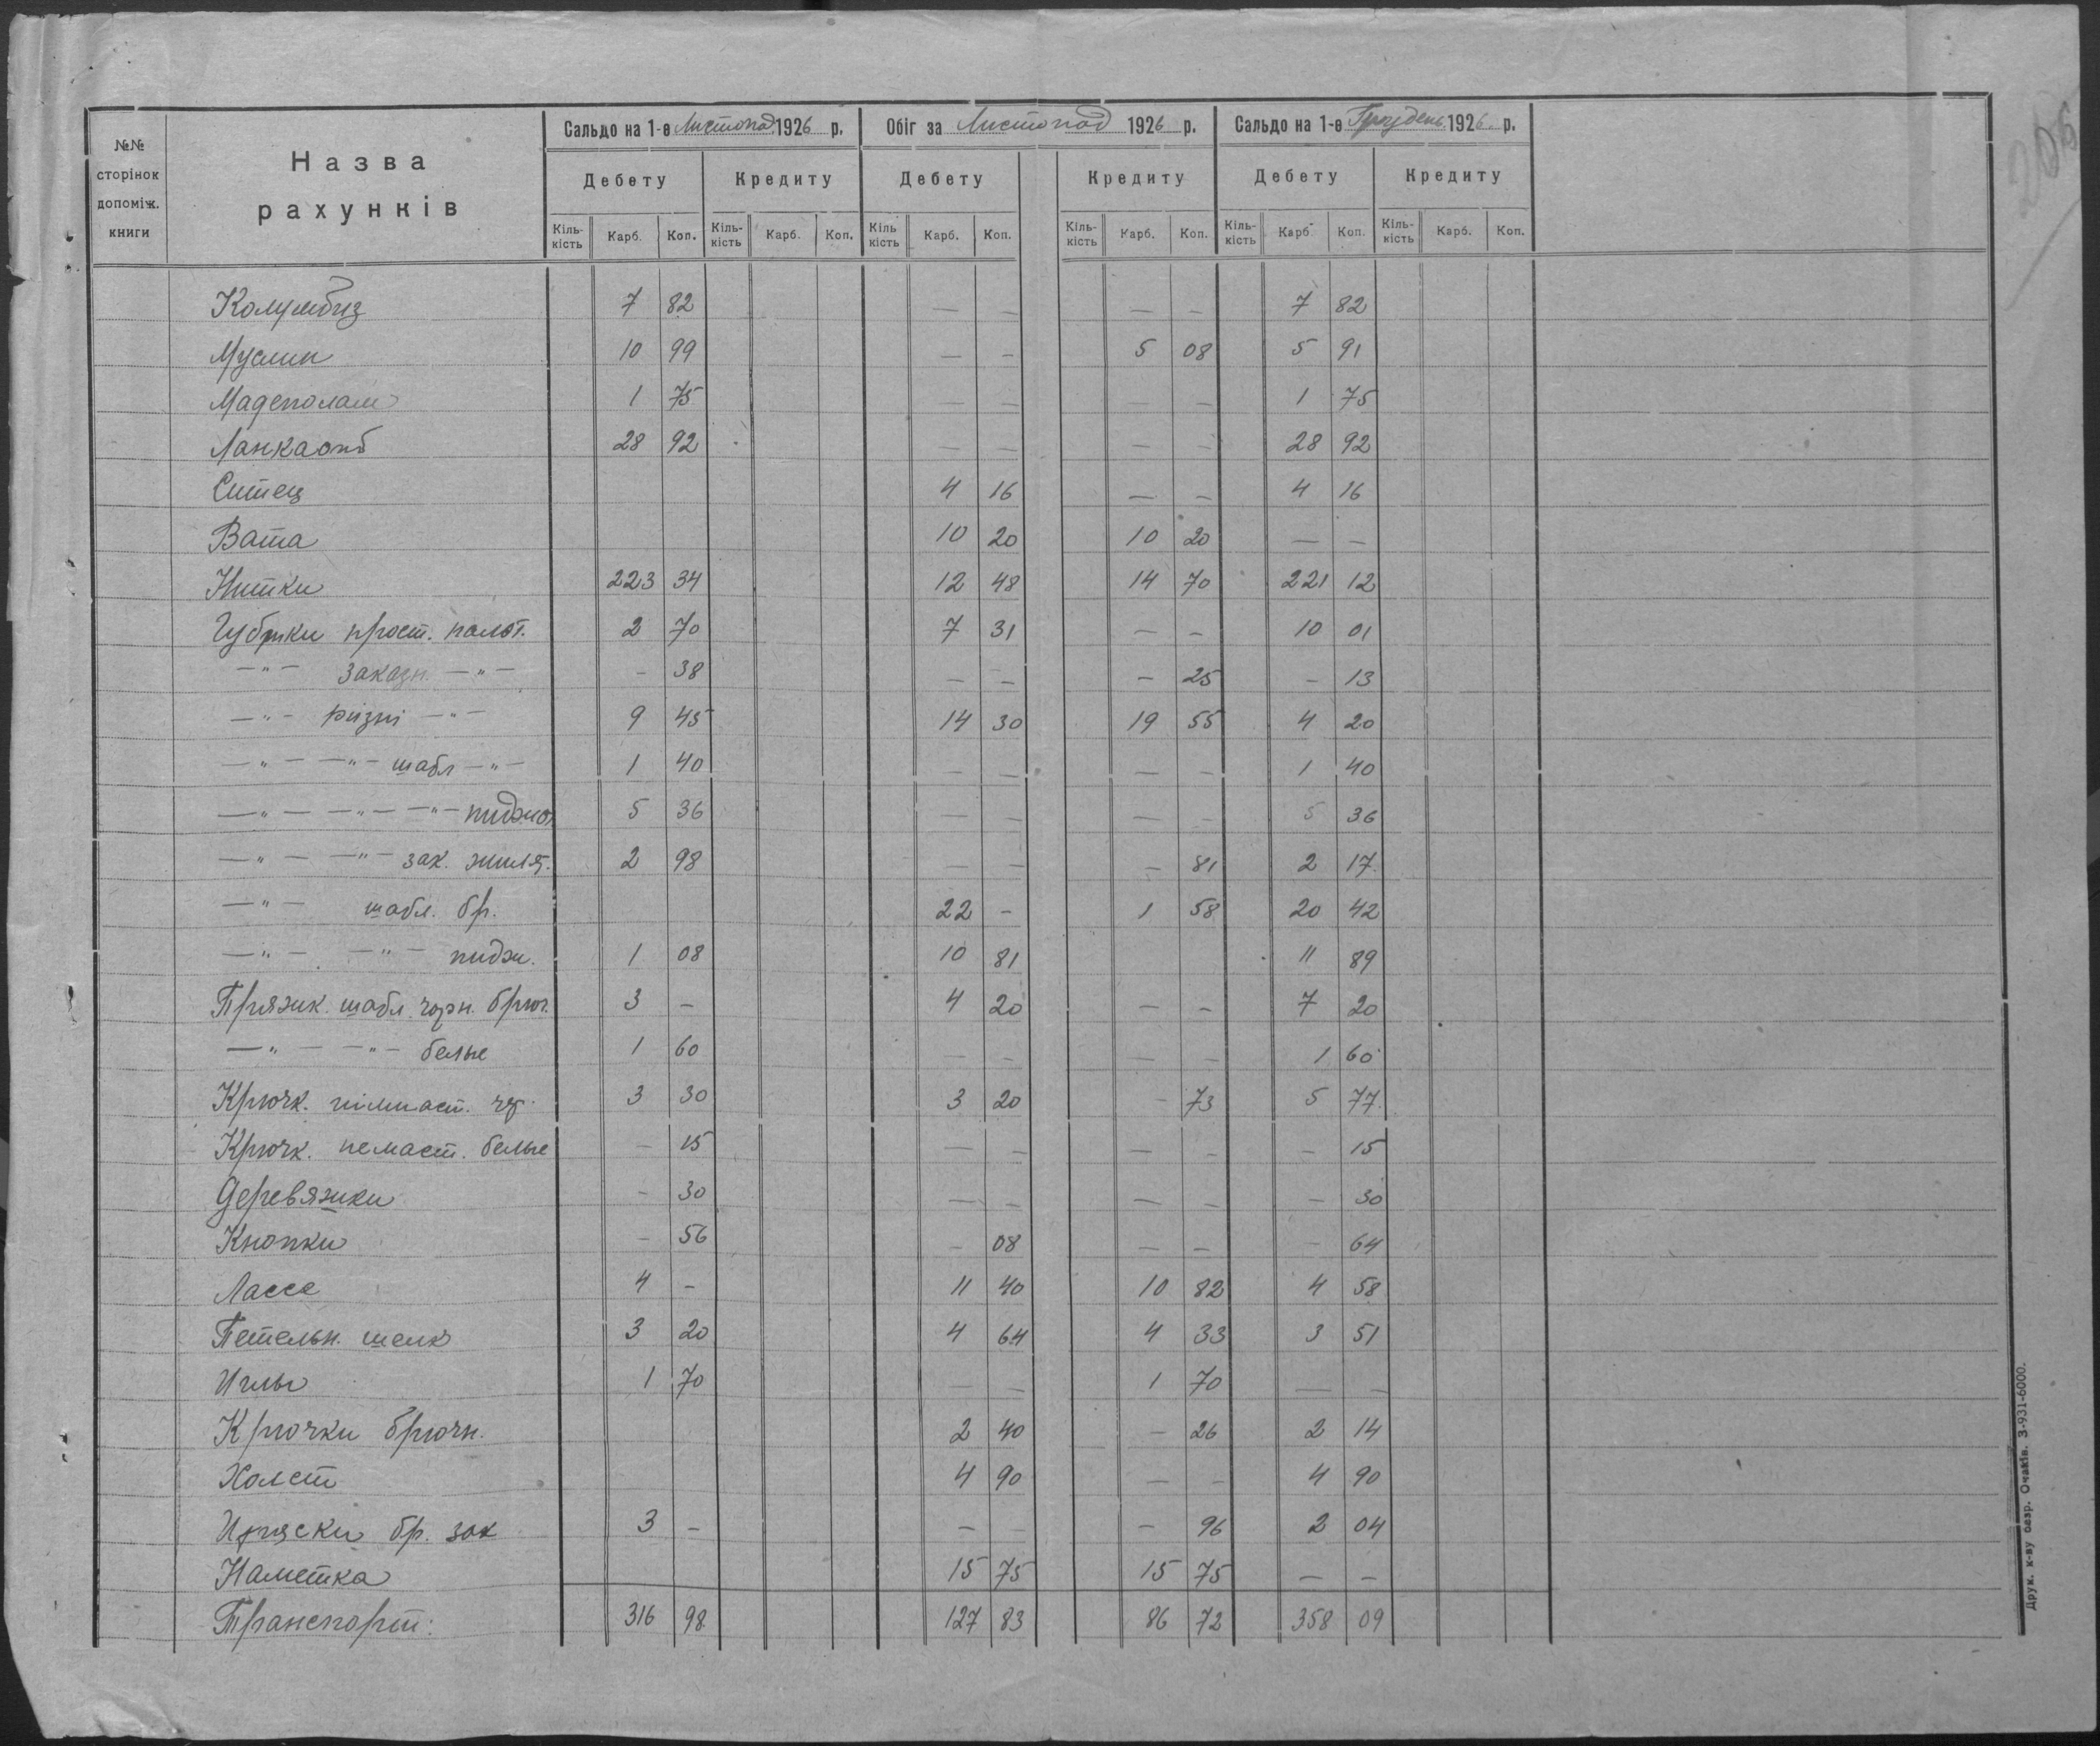 206
№№ сторінок допоміж. книги
Назва рахунків
Сальдо на 1-е Листопад 1926 р.
Обіг за Листопад 1926 р.
Сальдо на 1-е Грудень 1926 р.
Дебету Кредиту Дебету Кредиту Дебету Кредиту
Кіль-кість Карб. Коп. Кіль-кість Карб. Коп. Кіль кість Карб. Коп. Кіль-кість Карб. Коп. Кіль-кість Карб. Коп. Кіль-кість Карб. Коп.
7 82 — — — — 7 82
Муслин 10 99 — — 5 08 5 91
Мадеполам 1 75 — — — — 1 75
28 92 — — — — 28 92
Ситец 4 16 — — 4 16
Вата 10 20 10 20 — —
Нитки 223 34 12 48 14 70 221 12
прост. пальт. 2 70 7 31 — — 10 01
—"— заказн. —"— - 38 — — — 25 - 13
—"— різні —"— 9 45 14 30 19 55 4 20
—"— —"— шабл —"— 1 40 — — — — 1 40
—"— —"— —"— 5 36 — — — 5 36
—"— —"— зак. жилет. 2 98 — — — 81 2 17
—"— шабл. бр. 22 - 1 58 20 42
—"— —"— пидж. 1 08 10 81 11 89
Пряжк. шабл. чорн. брюч. 3 - 4 20 — — 7 20
—"— —"— белые 1 60 — — — — 1 60
Крючк. 3 30 3 20 - 73 5 77
Крючк. белые - 15 — — — - - 15
Деревяжки - 30 — — — — - 30
Кнопки - 56 - 08 — — - 64
Лассе 4 - 11 40 10 82 4 58
Петельн. шелк 3 20 4 64 4 33 3 51
Иглы 1 70 — 1 70 — —
Крючки брючн. 2 40 - 26 2 14
Холст 4 90 — — 4 90
бр. зак 3 - — — - 96 2 04
Наметка 15 75 15 75 — —
Транспорт: 316 98 127 83 86 72 358 09
Друк. к-ву безр. Очаків. З-931-6000.